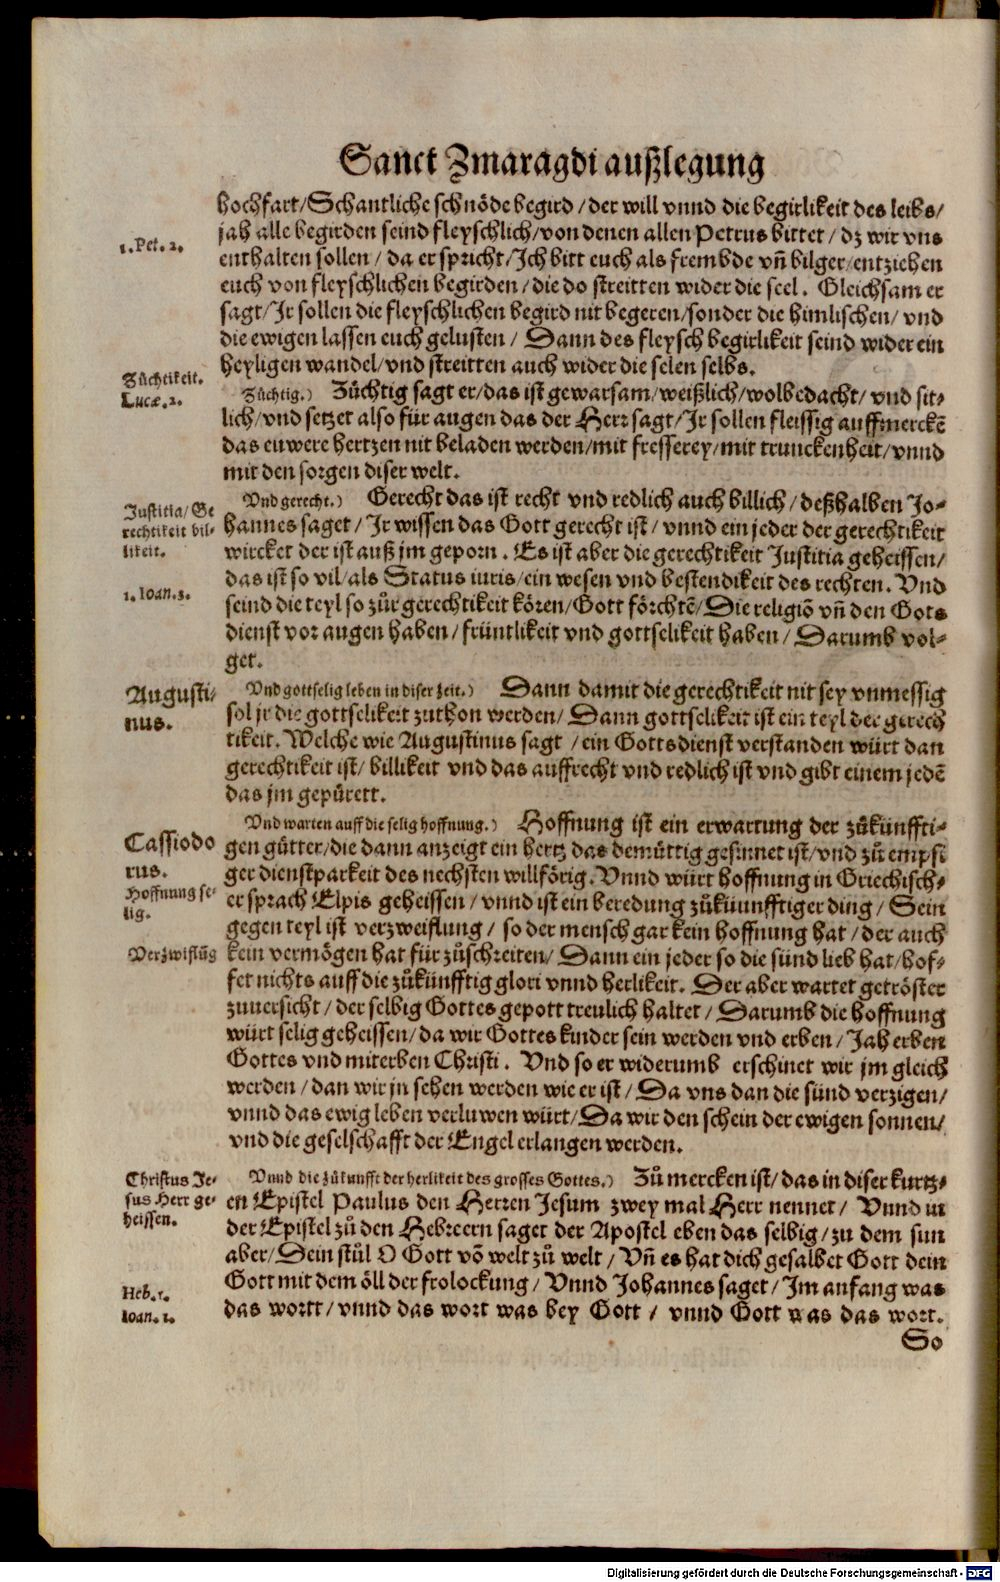 Sanct Zmaragdi außlegung
hochfart/Schantliche schnöde begird/der will vnnd die begirlikeit des leibs/
jah alle begirden seind fleyschlich/von denen allen Petrus bittet/dz wir vns
1. Pet. 2.
enthalten sollen/da er spricht/Ich bitt euch als frembde vñ bilger/entziehen
euch von fleyschlichen begirden/die do streitten wider die seel. Gleichsam er
sagt/Ir sollen die fleyschlichen begird nit begeren/sonder die himlischen/vnd
die ewigen lassen euch gelusten/Dann des fleysch begirlikeit seind wider ein
heyligen wandel/vnd streitten auch wider die selen selbs.
Züchtikeit.
Lucæ. 2.
Züchtig.) Züchtig sagt er/das ist gewarsam/weißlich/wolbedacht/vnd sit-
lich/vnd setzet also für augen das der Herr sagt/Ir sollen fleissig auffmerckẽ
das euwere hertzen nit beladen werden/mit fresserey/mit trunckenheit/vnnd
mit den sorgen diser welt.
Justitia/Ge
rechtikeit bil-
likeit.
Vnd gerecht.) Gerecht das ist recht vnd redlich auch billich/deßhalben Jo-
hannes saget/Ir wissen das Gott gerecht ist/vnnd ein jeder der gerechtikeit
wircket der ist auß jm geporn. Es ist aber die gerechtikeit Justitia geheissen/
das ist so vil/als Status iuris/ein wesen vnd bestendikeit des rechten. Vnd
1. Ioan. 3.
seind die teyl so zůr gerechtikeit kören/Gott förchtẽ/Die religiõ vñ den Gots
dienst vor augen haben/früntlikeit vnd gottselikeit haben/Darumb vol-
get.
Augusti-
nus.
Vnd gottselig leben in diser zeit.) Dann damit die gerechtikeit nit sey vnmessig
sol jr die gottselikeit zuthon werden/Dann gottselikeit ist ein teyl der gerech
tikeit. Welche wie Augustinus sagt/ein Gottsdienst verstanden würt dan
gerechtikeit ist/billikeit vnd das auffrecht vnd redlich ist vnd gibt einem jedẽ
das jm gepürett.
Cassiodo
rus.
Hoffnung se-
lig.
Vnd warten auff die selig hoffnung.) Hoffnung ist ein erwartung der zůkünffti-
gen gütter/die dann anzeigt ein hertz das demüttig gesinnet ist/vnd zů empsi
ger dienstparkeit des nechsten willförig. Vnnd würt hoffnung in Griechisch-
er sprach Elpis geheissen/vnnd ist ein beredung zůküunfftiger ding/Sein
gegen teyl ist verzweiflung/so der mensch gar kein hoffnung hat/der auch
Verzwiflũg
kein vermögen hat für zůschreiten/Dann ein jeder so die sünd lieb hat/hof-
fet nichts auff die zůkünfftig glori vnnd herlikeit. Der aber wartet getröster
zuuersicht/der selbig Gottes gepott treulich haltet/Darumb die hoffnung
würt selig geheissen/da wir Gottes kinder sein werden vnd erben/Jah erben
Gottes vnd miterben Christi. Vnd so er widerumb erschinet wir jm gleich
werden/dan wir jn sehen werden wie er ist/Da vns dan die sünd verzigen/
vnnd das ewig leben verluwen würt/Da wir den schein der ewigen sonnen/
vnd die geselschafft der Engel erlangen werden.
Christus Je-
sus Herr ge-
heissen.
Vnnd die zůkunfft der herlikeit des grosses Gottes.) Zů mercken ist/das in diser kurtz-
en Epistel Paulus den Herren Jesum zwey mal Herr nennet/Vnnd in
der Epistel zů den Hebreern saget der Apostel eben das selbig/zu dem sun
aber/Dein stůl O Gott võ welt zů welt/Vñ es hat dich gesalbet Gott dein
Heb. 1.
Gott mit dem öll der frolockung/Vnnd Johannes saget/Im anfang was
Ioan. 1.
das wortt/vnnd das wort was bey Gott/vnnd Gott was das wort.
So
Digitalisierung gefördert durch die Deutsche Forschungsgemeinschaft - DFG